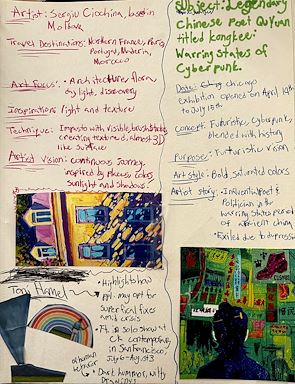 Artist: Sergiu Ciochina, based in
Moldova
Travel Destinations: Northern France, Paris,
Portugal, Madeira,
Morocco
Art Focus: Architecture, flora,
daylight, discovery
Inspiration: light and texture
Technique: Impasto with visible brushstrokes
creating textured, almost 3D
like surface
Artist Vision: Continuous journey
inspired by places, colors,
sunlight and shadows.
Tony Hamel
• Highlights how
ppl may opt for
superficial fixes
amid crisis
solo show at
contemporary
in San Francisco,
July 6-Aug
of human
behavior
• Dark humor, witty
Drawings
Subject: Legendary
Chinese Poet Qu Yuan
titled Kongkee:
Warring States of
Cyberpunk.
Date: Chicago
exhibition opened on April
to July
Concept: Futuristic, Cyberpunk,
blended with history
Purpose: Futuristic vision
Art style: Bold, Saturated colors
Artist story: Poet &
Politician in the
warring States period
of ancient china
• Exiled due to depression